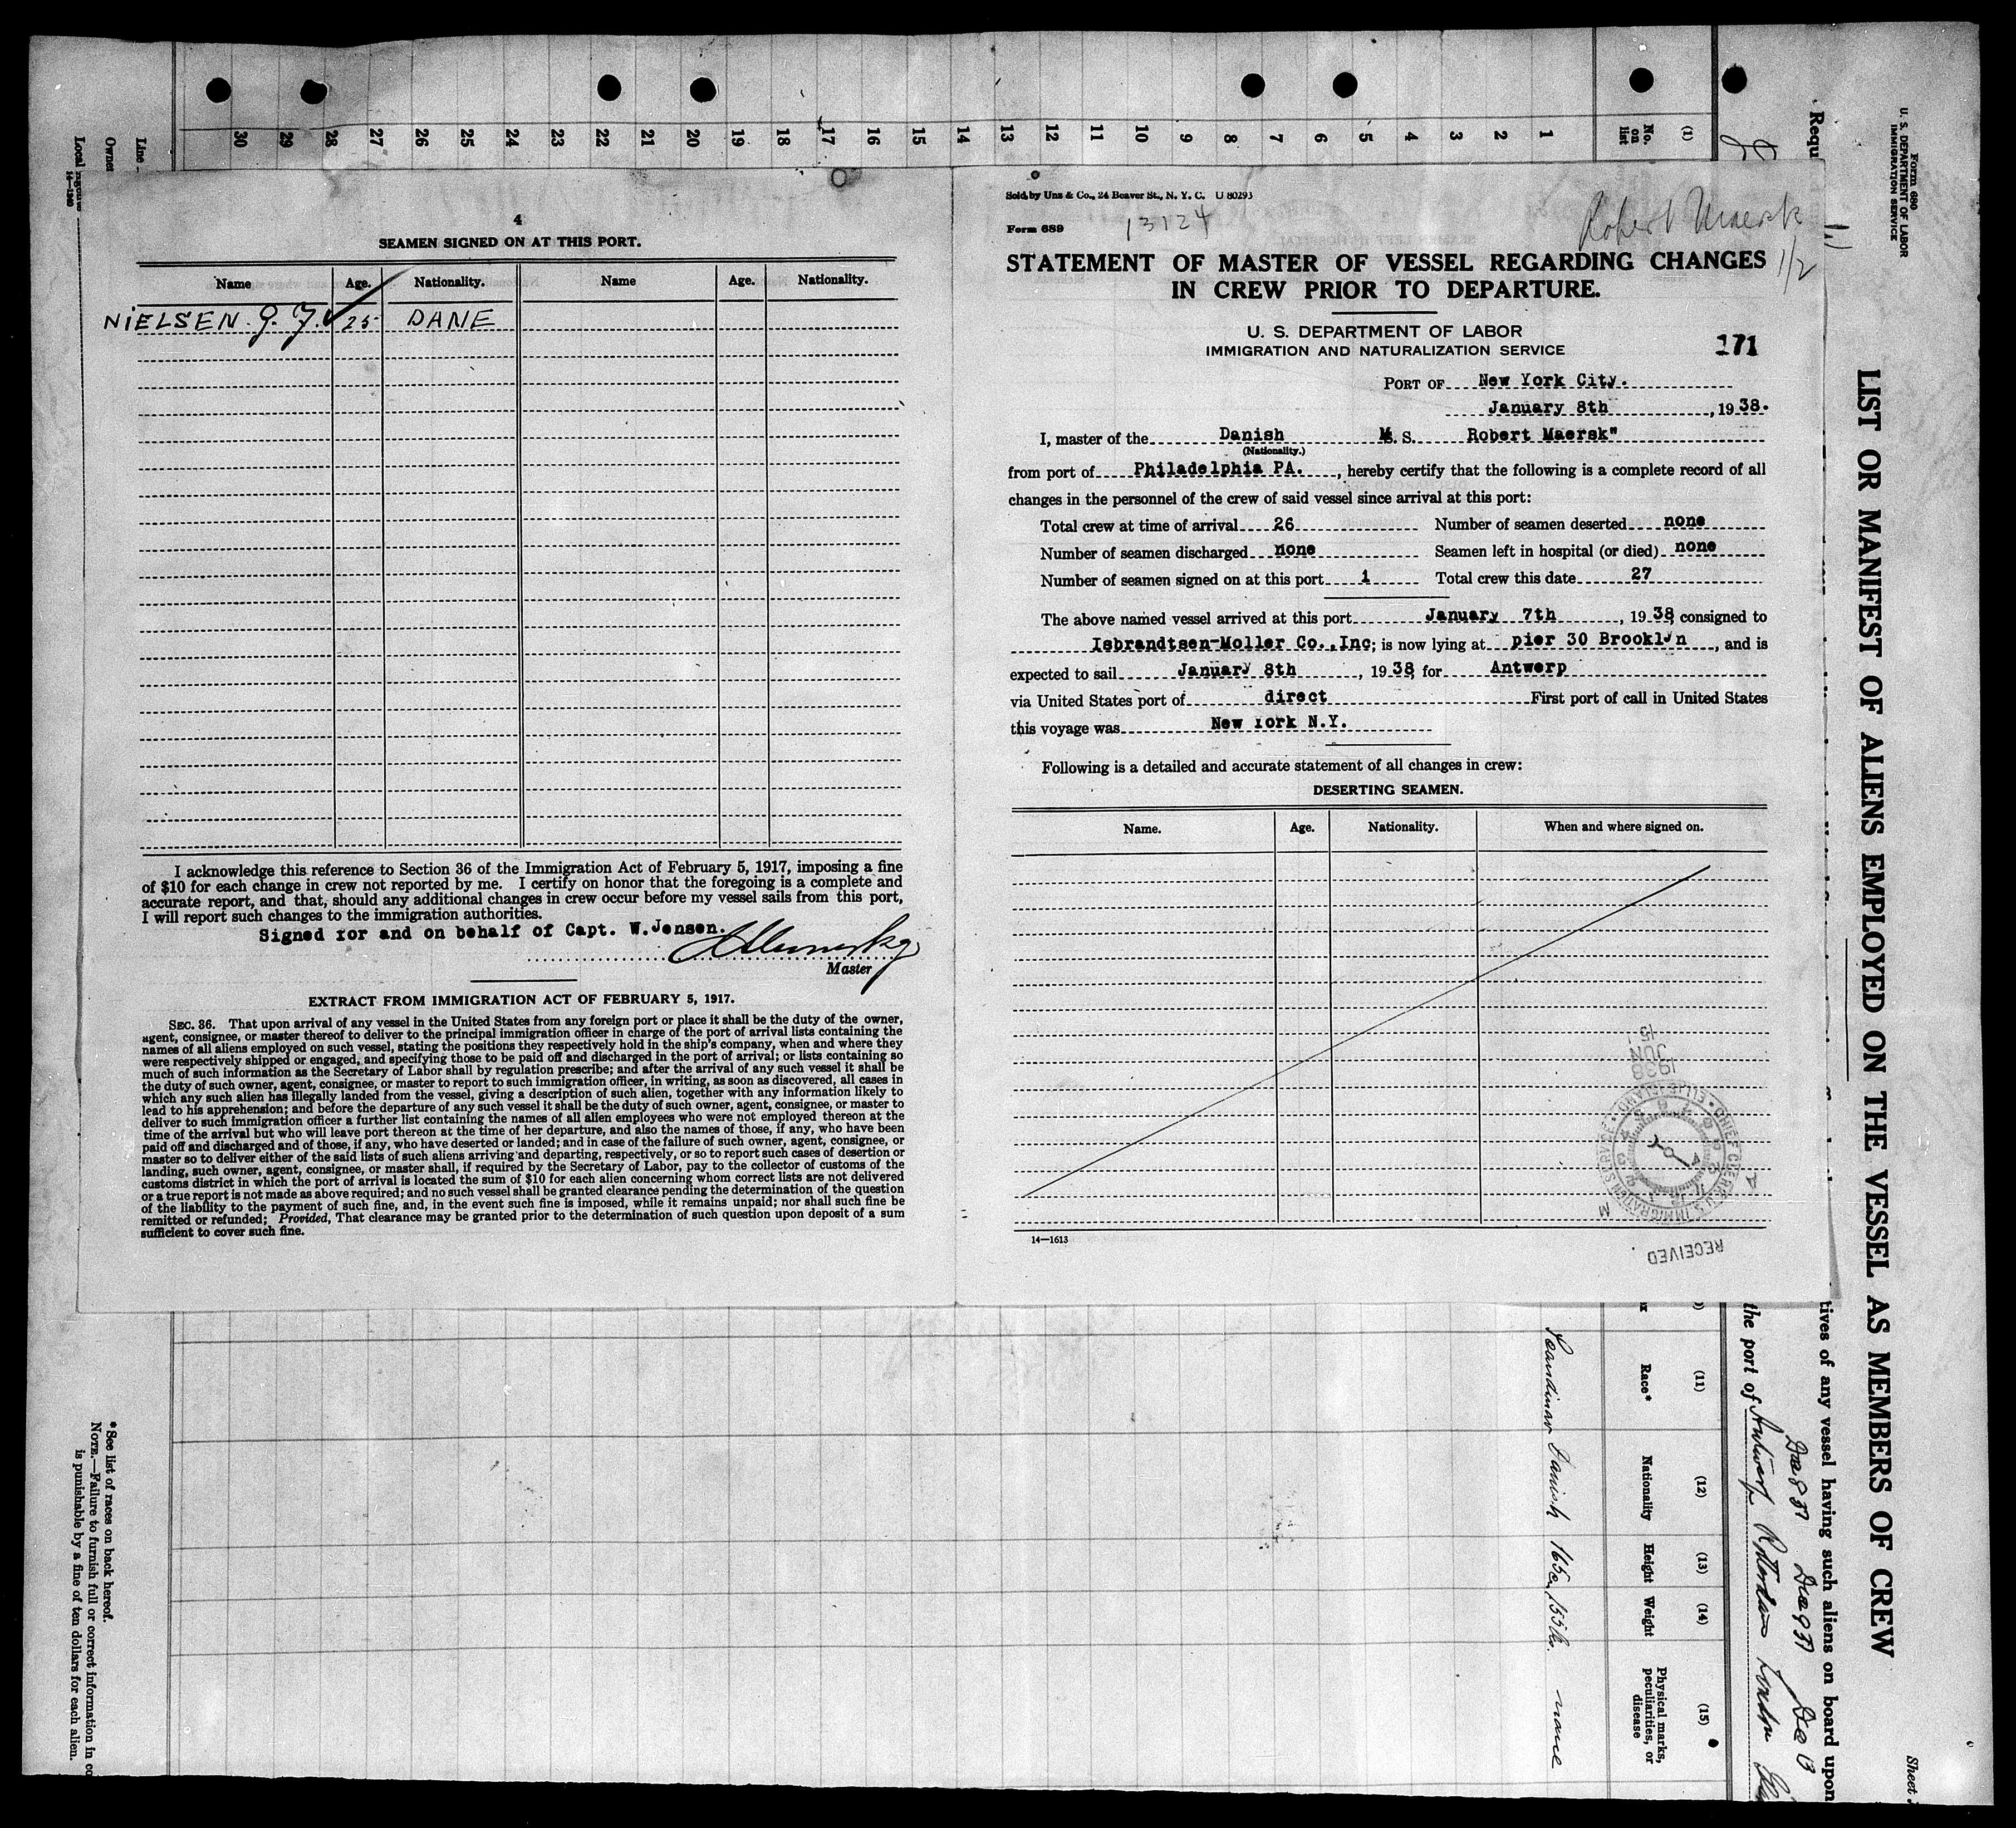 4
SEAMEN SIGNED ON AT THIS PORT.
Name Age. Nationality. Name Age. Nationality.
NIELSEN. 25 DANE
I acknowledge this reference to Section 36 of the Immigration Act of February 5, 1917, imposing a fine
of $10 for each change in crew not reported by me. I certify on honor that the foregoing is a complete and
accurate report, and that, should any additional changes in crew occur before my vessel sails from this port,
I will report such changes to the immigration authorities.
Signed for and on behalf of Capt. W.Jensen.
Master
EXTRACT FROM IMMIGRATION ACT OF FEBRUARY 5, 1917.
SEC. 36. That upon arrival of any vessel in the United States from any foreign port or place it shall be the duty of the owner,
agent, consignee, or master thereof to deliver to the principal immigration officer in charge of the port of arrival lists containing the
names of all aliens employed on such vessel, stating the positions they respectively hold in the ship's company, when and where they
were respectively shipped or engaged, and specifying those to be paid off and discharged in the port of arrival; or lists containing so
much of such information as the Secretary of Labor shall by regulation prescribe; and after the arrival of any such vessel it shall be
the duty of such owner, agent, consignee, or master to report to such immigration officer, in writing, as soon as discovered, all cases in
which any such alien has illegally landed from the vessel, giving a description of such alien, together with any information likely to
lead to his apprehension; and before the departure of any such vessel it shall be the duty of such owner, agent, consignee, or master to
deliver to such immigration officer a further list containing the names of all alien employees who were not employed thereon at the
time of the arrival but who will leave port thereon at the time of her departure, and also the names of those, if any, who have been
paid off and discharged and of those, if any, who have deserted or landed; and in case of the failure of such owner, agent, consignee, or
master so to deliver either of the said lists of such aliens arriving and departing, respectively, or so to report such cases of desertion or
landing, such owner, agent, consignee, or master shall, if required by the Secretary of Labor, pay to the collector of customs of the
customs district in which the port of arrival is located the sum of $10 for each alien concerning whom correct lists are not delivered
or a true report is not made as above required; and no such vessel shall be granted clearance pending the determination of the question
of the liability to the payment of such fine, and, in the event such fine is imposed, while it remains unpaid; nor shall such fine be
remitted or refunded; Provided, That clearance may be granted prior to the determination of such question upon deposit of a sum
sufficient to cover such fine.
Sold by Unz & Co., 24 Beaver St., N. Y. C. U 80293
Form 689 13124 Robert Maersk
1/2
STATEMENT OF MASTER OF VESSEL REGARDING CHANGES
IN CREW PRIOR TO DEPARTURE.
U. S. DEPARTMENT OF LABOR
IMMIGRATION AND NATURALIZATION SERVICE
171
PORT OF New York City.
January 8th, 1938.
I, master of the Danish M. S. Robert Maersk"
(Nationality.)
from port of Philadelphia PA., hereby certify that the following is a complete record of all
changes in the personnel of the crew of said vessel since arrival at this port:
Total crew at time of arrival 26 Number of seamen deserted none
Number of seamen discharged none Seamen left in hospital (or died) none
Number of seamen signed on at this port 1 Total crew this date 27
The above named vessel arrived at this port January 7th, 1938, consigned to
Isbrandtsen-Moller Co.,Inc; is now lying at pier 30 Brooklyn, and is
expected to sail January 8th, 1938, for Antwerp
via United States port of direct First port of call in United States
this voyage was New York N.Y.
Following is a detailed and accurate statement of all changes in crew:
DESERTING SEAMEN.
Name. Age. Nationality. When and where signed on.
14—1613
RECEIVED
1938
JUN
15
Form 680
U. S. DEPARTMENT OF LABOR
IMMIGRATION SERVICE
LIST OR MANIFEST OF ALIENS EMPLOYED ON THE VESSEL AS MEMBERS OF CREW
Sheet
Requ
tives of any vessel having such aliens on board upon
Dec 8 37 Dec 9 37
the port of Antwerp Rotterdam London
(1)
No. on list
1 2 3 4 5 6 7 8 9 10 11 12 13 14 15 16 17 18 19 20 21 22 23 24 25 26 27 28 29 30
(11) (12) (13) (14) (15)
Race* Nationality Height Weight Physical marks, peculiarities, or disease
Scandinav Danish none
Line
Owner
Local
14—1240
* See list of races on back hereof.
NOTE.—Failure to furnish full or correct information in co
is punishable by a fine of ten dollars for each alien.